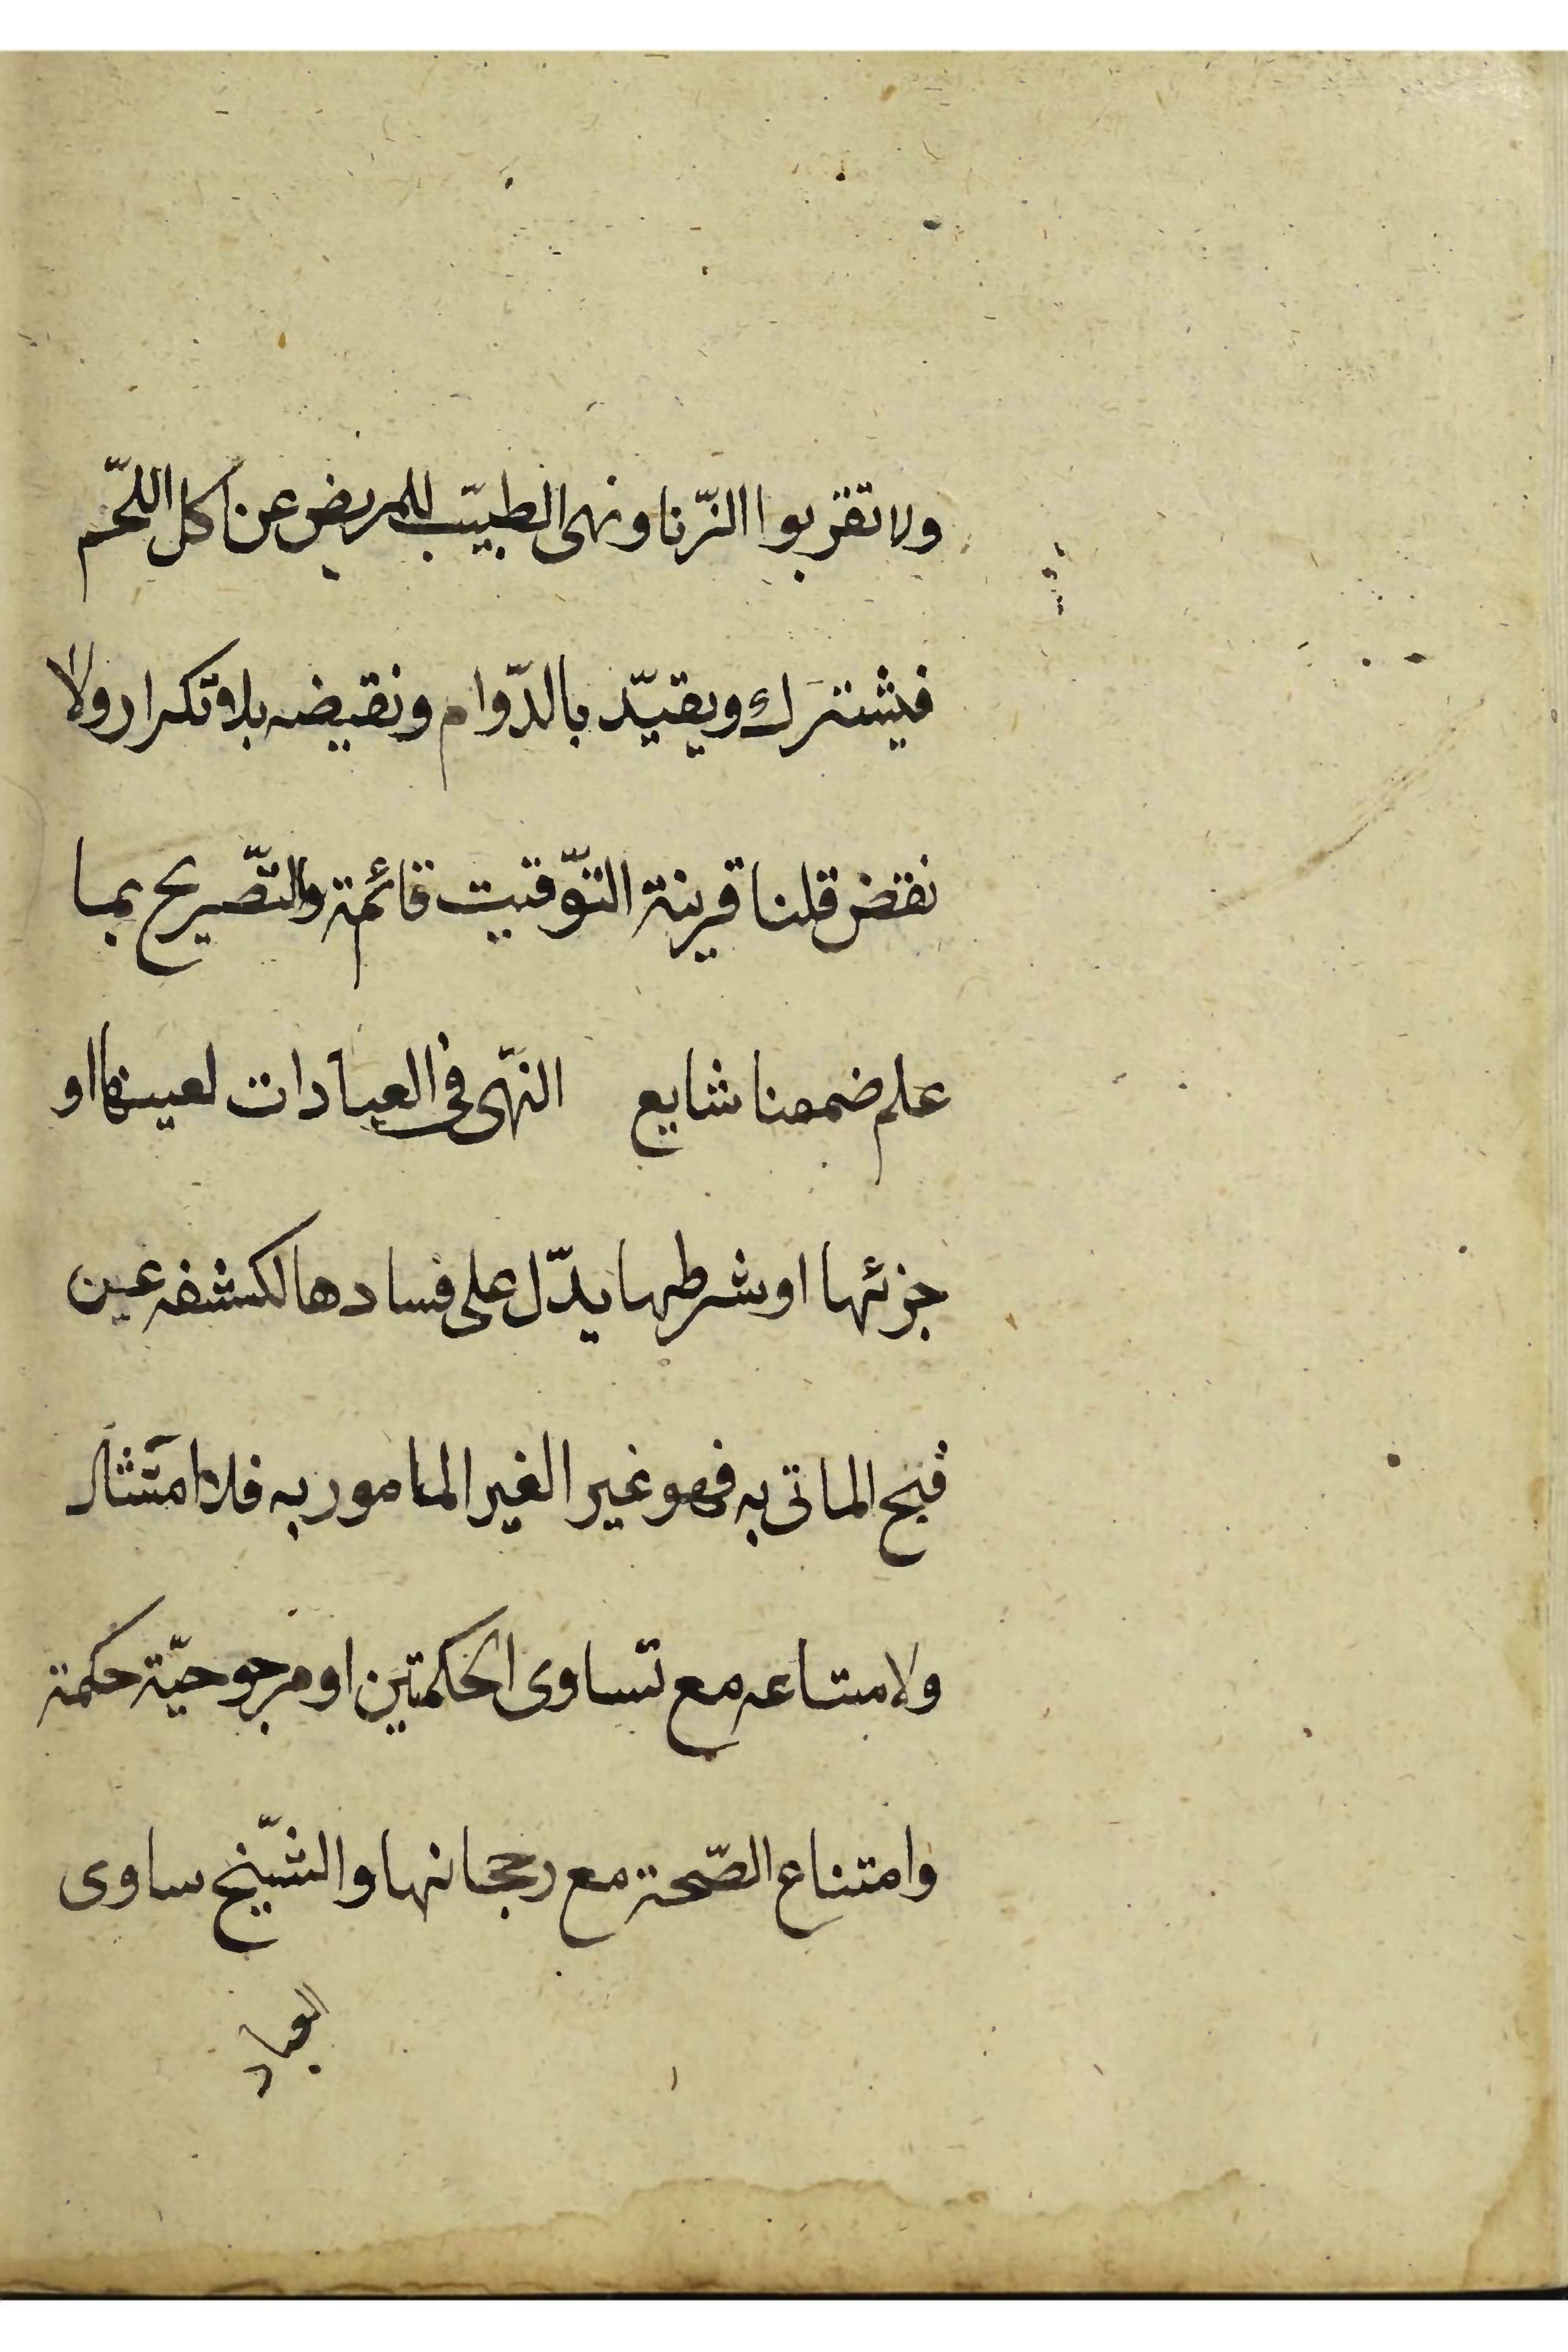 ولا تقربوا الزّنا ونهى الطبيّب للمريض عن اكل اللّحم
فيشترَك ويقيّد بالدّوام ونقيضه بلا تكرار ولا
نقض قلنا قرينة التّوقيت قائمة والتّصريح بما
علم ضمنا شايع النّهى في العبادات لعينها او
جزئها او شرطها يدّل على فسادها لكشفه عين
قبح الماتى به فهو غير الغير المامور به فلا امتثال
ولا مع تساوى الحكمتين او مرجوحيّة حكمة
وامتناع الصّحة مع رجحانها والشّيخ ساوى